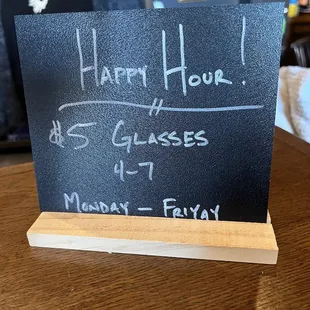 Happy Hour!
$5 Glasses
4-7
Monday - Friyay